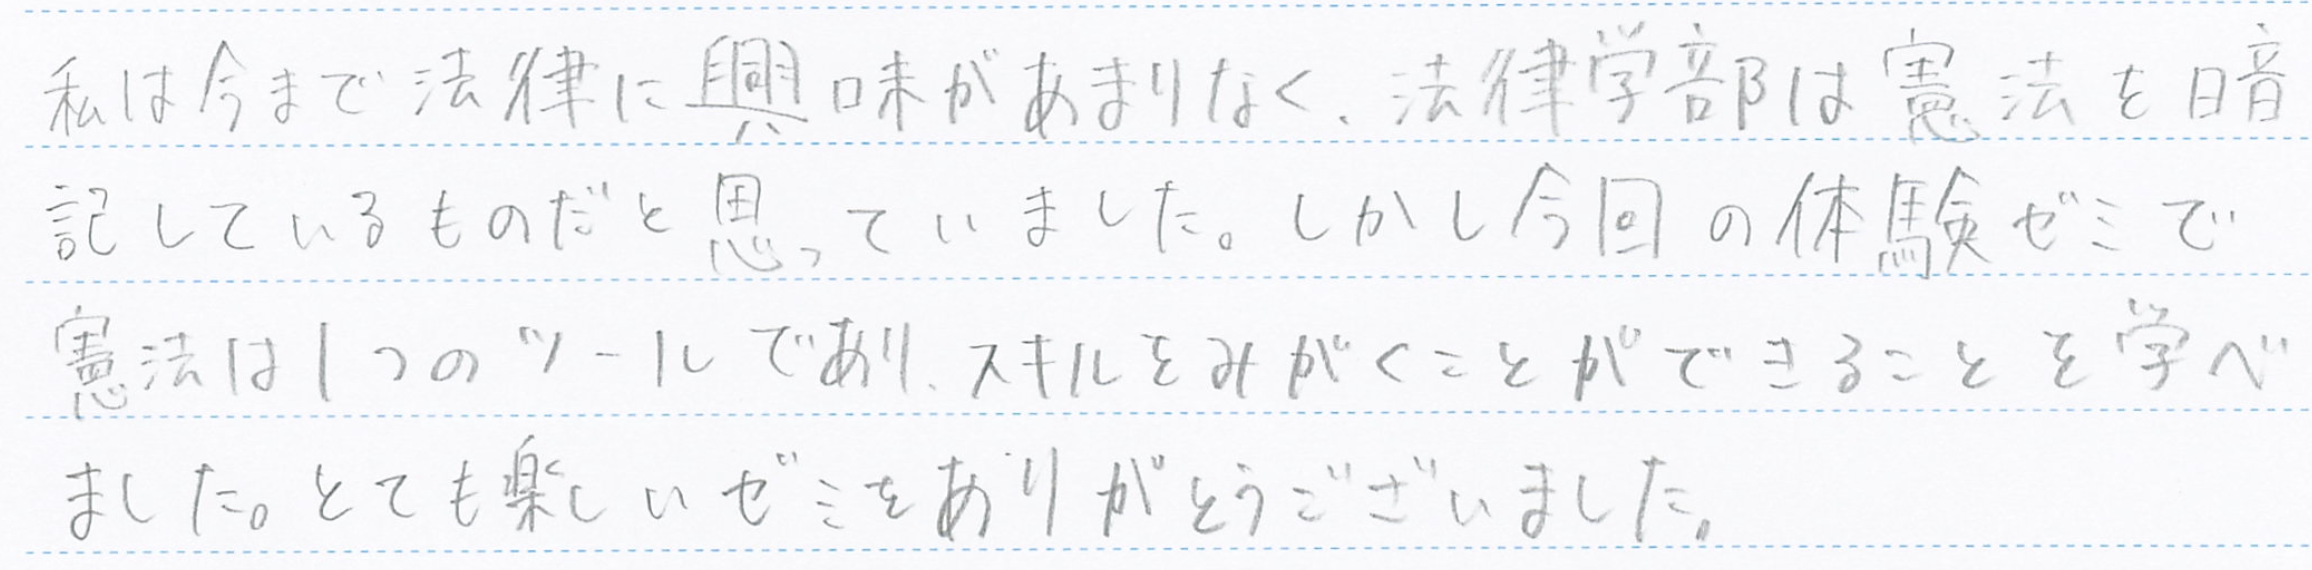 私は今まで法律に興味があまりなく、法律学部は憲法を暗
記しているものだと思っていました。しかし今回の体験ゼミで
憲法は1つのツールであり、スキルをみがくことができることを学べ
ました。とても楽しいゼミをありがとうございました。